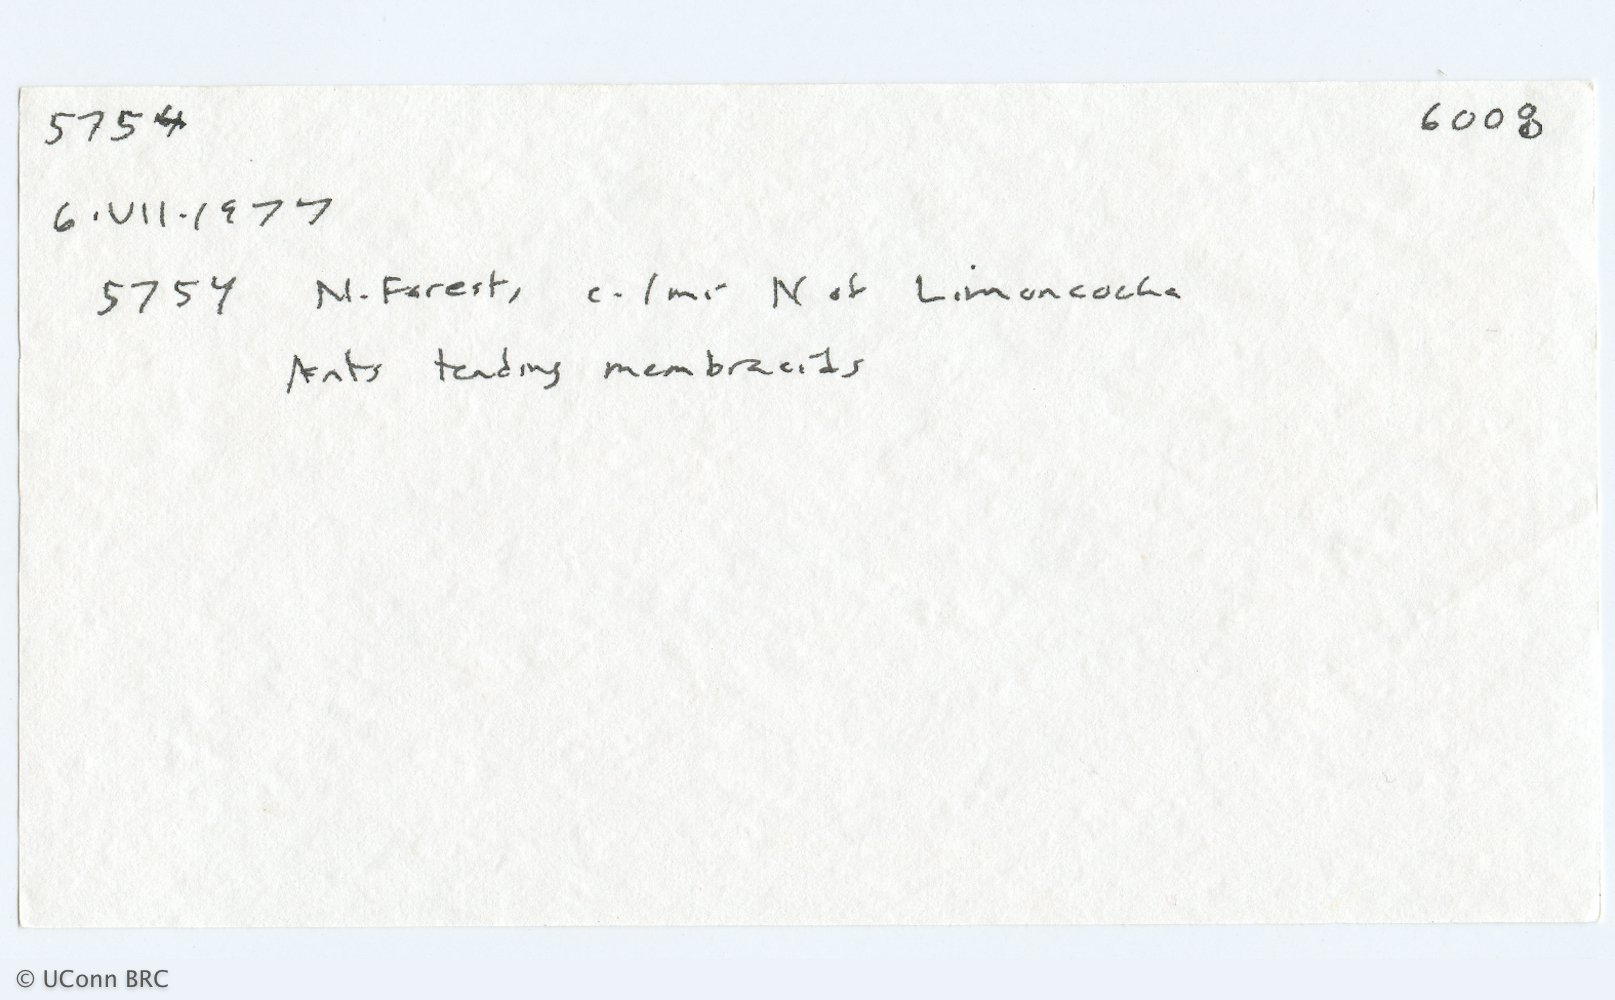 5754 6008
6.VII.1977
5754 N. Forest, c. 1 mi N of Limoncocha
Ants tending membracids
© UConn BRC